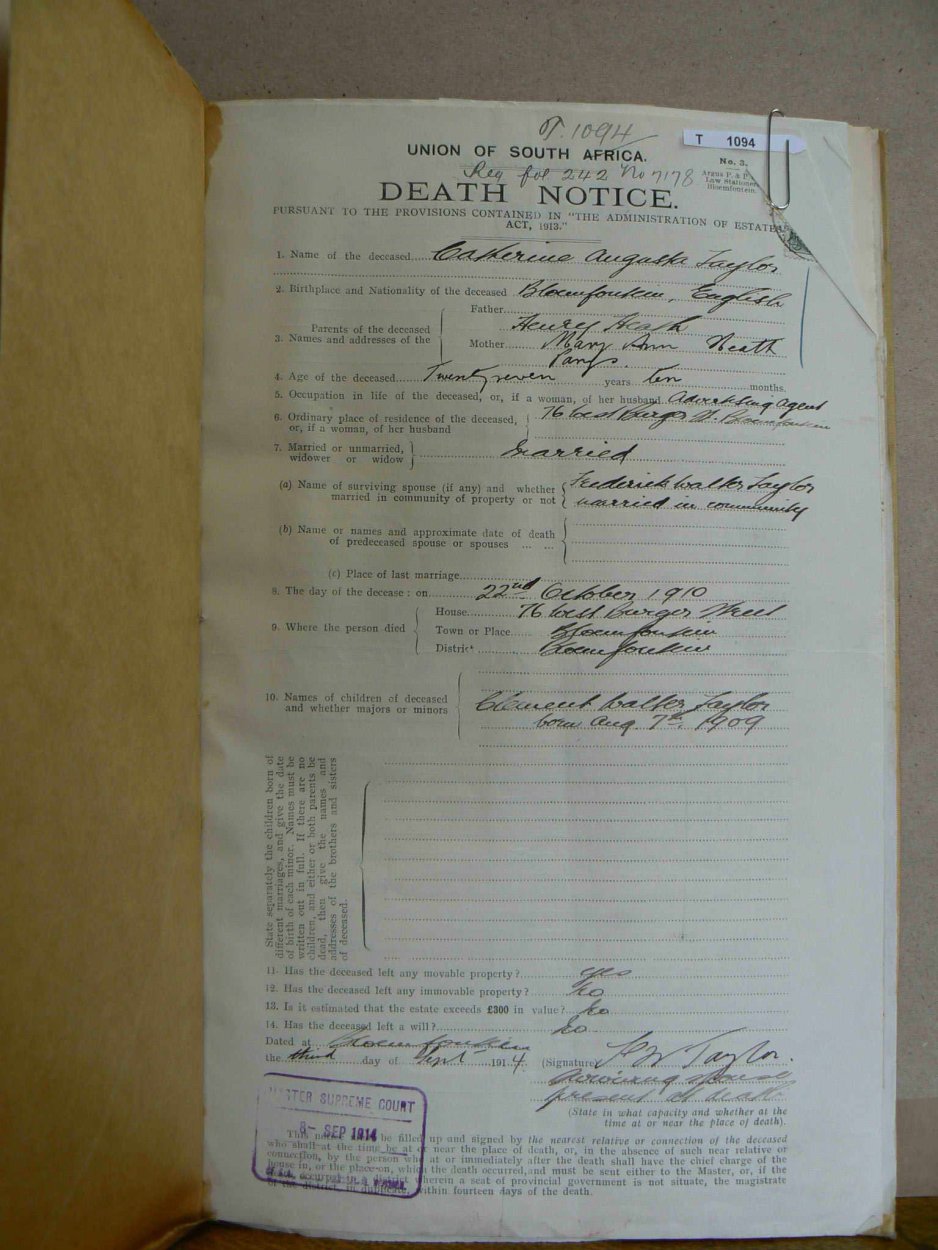 T. 1094
T 1094
UNION OF SOUTH AFRICA.
No. 3.
Argus P. & P.
Law Stationer
Bloemfontein.
Reg fol 242 No 7178
DEATH NOTICE.
PURSUANT TO THE PROVISIONS CONTAINED IN "THE ADMINISTRATION OF ESTATES
ACT, 1913."
1. Name of the deceased Catherine Augusta Taylor
2. Birthplace and Nationality of the deceased Bloemfontein, English
Father Henry Heath
Parents of the deceased
3. Names and addresses of the
Mother Mary Ann Heath
4. Age of the deceased Twenty seven years ten months.
5. Occupation in life of the deceased, or, if a woman, of her husband Advertising agent
6. Ordinary place of residence of the deceased, or, if a woman, of her husband 76 West Burger St. Bloemfontein
7. Married or unmarried, widower or widow Married
(a) Name of surviving spouse (if any) and whether Frederick Walter Taylor
married in community of property or not married in community
(b) Name or names and approximate date of death
of predeceased spouse or spouses ... ...
(c) Place of last marriage
8. The day of the decease: on 22nd October 1910
9. Where the person died
House 76 West Burger Street
Town or Place Bloemfontein
District Bloemfontein
10. Names of children of deceased Clement Walter Taylor
and whether majors or minors born Aug. 7th 1909
State separately the children born of
different marriages, and give the date
of birth of each minor. Names must be
written out in full. If there are no
children, and either or both parents be
dead, then give the names and
addresses of the brothers and sisters
of deceased.
11. Has the deceased left any movable property? yes
12. Has the deceased left any immovable property? No
13. Is it estimated that the estate exceeds £300 in value? No
14. Has the deceased left a will? No
Dated at Bloemfontein
the third day of Sept 1914
(Signature) F W Taylor.
Surviving spouse
present at death.
(State in what capacity and whether at the
time at or near the place of death).
MASTER SUPREME COURT
8- SEP 1914
This notice be filled up and signed by the nearest relative or connection of the deceased
who shall at the time be at or near the place of death, or, in the absence of such near relative or
connection, by the person who at or immediately after the death shall have the chief charge of the
house in, or the place on, which the death occurred, and must be sent either to the Master, or, if the
wherein a seat of provincial government is not situate, the magistrate
of the district, in duplicate, within fourteen days of the death.